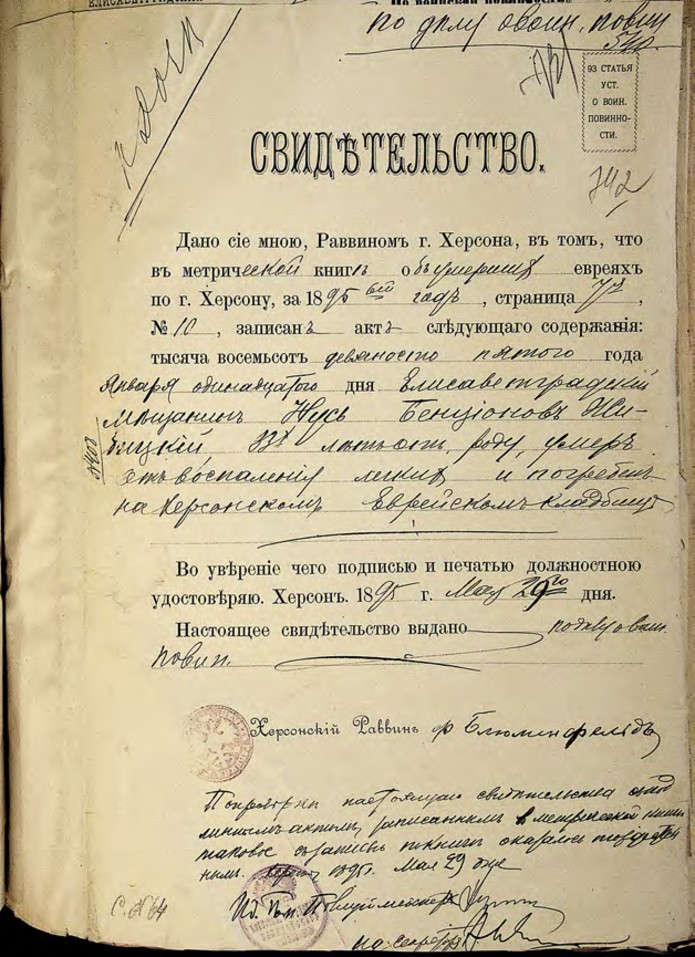 По дѣлу о воин. повин
93 СТАТЬЯ
УСТ.
О ВОИН.
ПОВИННО-
СТИ.
СВИДѢТЕЛЬСТВО.
742
Дано сіе мною, Раввиномъ г. Херсона, въ томъ, что
въ метрической книгѣ объ умершихъ евреяхъ
по г. Херсону, за 1895 годъ, страница
№ 10, записанъ актъ слѣдующаго содержанія:
тысяча восемьсотъ девяносто пятого года
Января одинадцатого дня Елисаветградскій
мѣщанинъ Нусь Бенціоновъ
лѣтъ отъ роду, умеръ
отъ воспаленія легкихъ и погребенъ
на Херсонскомъ Еврейскомъ кладбищѣ
Во увѣреніе чего подписью и печатью должностною
удостовѣряю. Херсонъ. 1895 г. Мая 29го дня.
Настоящее свидѣтельство выдано по дѣлу о воин.
повин.
Херсонскій Раввинъ Блюменфельдъ
По провѣркѣ настоящаго свидѣтельства съ под
линнымъ актомъ, записаннымъ въ метрической книгѣ
таковое оказалось тождествен
нымъ. 1895 г. Мая 29 дня
С. № 64
Полиціймейстера